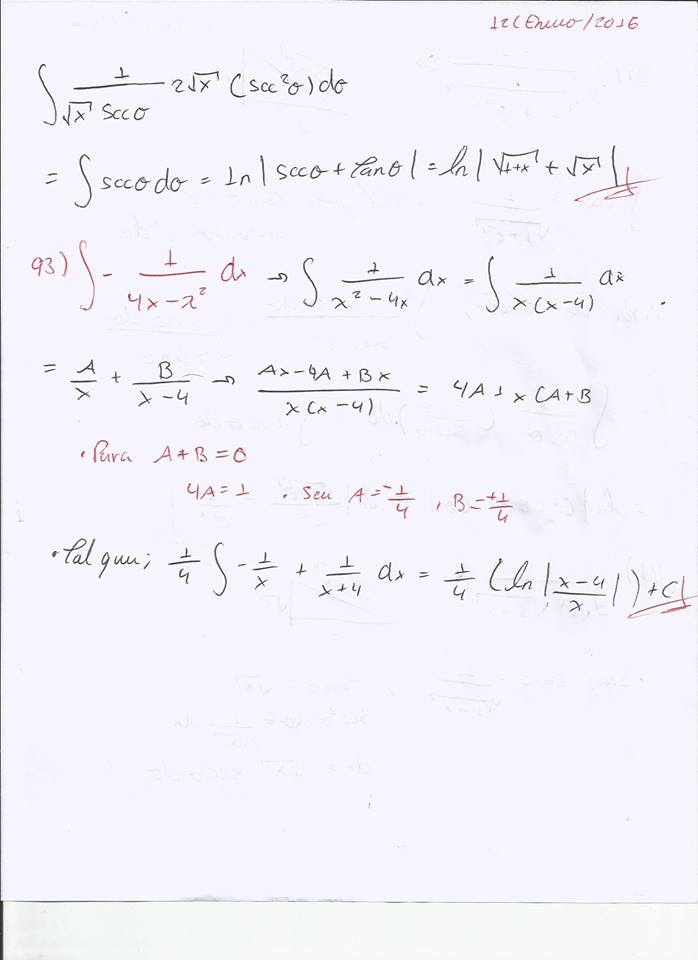 12/Enero/2016
∫ 1/(√x secθ) 2√x (sec²θ) dθ
= ∫ secθ dθ = Ln|secθ + tanθ| = ln|√(1+x) + √x|
93) ∫ - 1/(4x-x²) dx → ∫ 1/(x²-4x) dx = ∫ 1/(x(x-4)) dx
= A/x + B/(x-4) → (Ax-4A+Bx)/(x(x-4)) = 4A + x(A+B
• Para A+B=0
4A=1 • Sea A=-1/4, B=+1/4
• Tal que; 1/4 ∫ -1/x + 1/(x+4) dx = 1/4 (ln|(x-4)/x|) + C